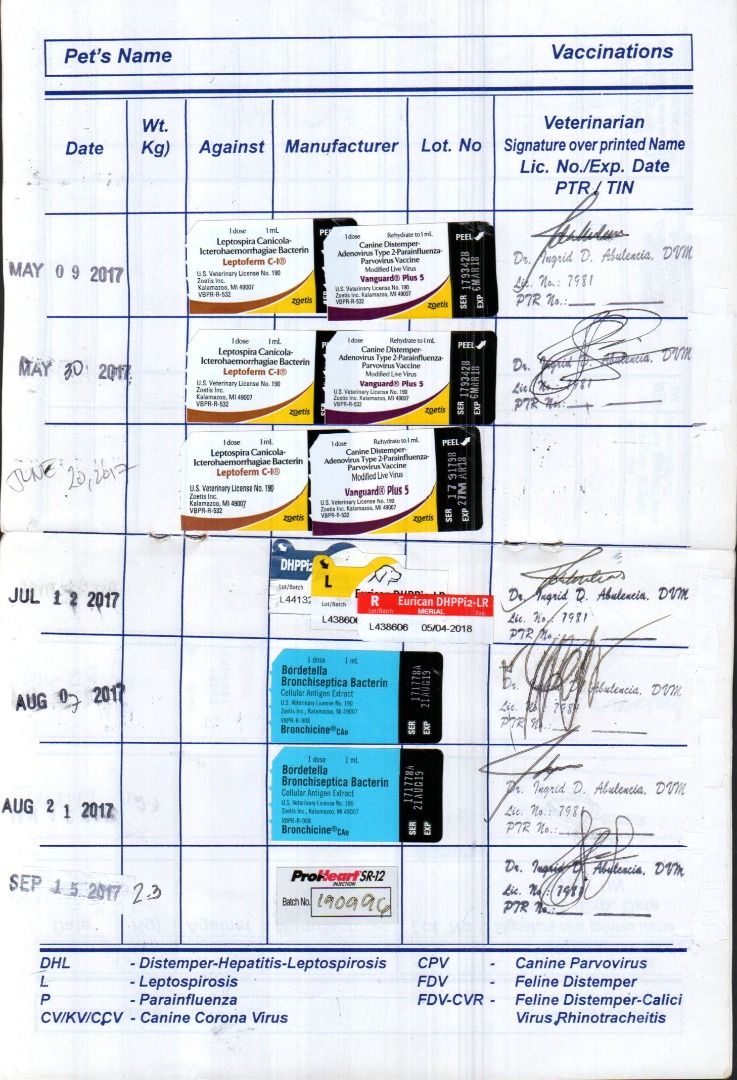 Pet's Name Vaccinations
Date Wt. Kg) Against Manufacturer Lot. No Veterinarian
Signature over printed Name
Lic. No./Exp. Date
PTR / TIN
MAY 09 2017
1 dose 1 mL
Leptospira Canicola-
Icterohaemorrhagiae Bacterin
Leptoferm C-I®
U.S. Veterinary License No. 190
Zoetis Inc.
Kalamazoo, MI 49007
VBPR-R-532
zoetis
PE
1 dose Rehydrate to 1 mL
Canine Distemper-
Adenovirus Type 2-Parainfluenza-
Parvovirus Vaccine
Modified Live Virus
Vanguard® Plus 5
U.S. Veterinary License No. 190
Zoetis Inc.
Kalamazoo, MI 49007
VBPR-R-532
zoetis
PEEL
SER 179342B
EXP 6MAR18
Dr. Ingrid D. Abulencia, DVM
Lic. No.: 7981
PTR No.:
MAY 30 2017
1 dose 1 mL
Leptospira Canicola-
Icterohaemorrhagiae Bacterin
Leptoferm C-I®
U.S. Veterinary License No. 190
Zoetis Inc.
Kalamazoo, MI 49007
VBPR-R-532
zoetis
1 dose Rehydrate to 1 mL
Canine Distemper-
Adenovirus Type 2-Parainfluenza-
Parvovirus Vaccine
Modified Live Virus
Vanguard® Plus 5
U.S. Veterinary License No. 190
Zoetis Inc.
Kalamazoo, MI 49007
VBPR-R-532
zoetis
PEEL
SER 179342B
EXP 6MAR18
Dr. Ingrid D. Abulencia, DVM
Lic. No.: 7981
PTR No.:
JUNE 20, 2017
1 dose 1 mL
Leptospira Canicola-
Icterohaemorrhagiae Bacterin
Leptoferm C-I®
U.S. Veterinary License No. 190
Zoetis Inc.
Kalamazoo, MI 49007
VBPR-R-532
zoetis
1 dose Rehydrate to 1 mL
Canine Distemper-
Adenovirus Type 2-Parainfluenza-
Parvovirus Vaccine
Modified Live Virus
Vanguard® Plus 5
U.S. Veterinary License No. 190
Zoetis Inc.
Kalamazoo, MI 49007
VBPR-R-532
zoetis
PEEL
SER
EXP 27MAR18
JUL 12 2017
DHPPi2
Lot/Batch
L4413
L
Lot/Batch
L438606
R Eurican DHPPi2-LR
Lot/Batch MERIAL Exp.
L438606 05/04-2018
Dr. Ingrid D. Abulencia, DVM
Lic. No.: 7981
PTR No.:
AUG 07 2017
1 dose 1 mL
Bordetella
Bronchiseptica Bacterin
Cellular Antigen Extract
U.S. Veterinary License No. 190
Zoetis Inc., Kalamazoo, MI 49007
VBPR-R-908
Bronchicine® CAe
SER 171778A
EXP 21AUG19
Dr. D. Abulencia, DVM
Lic. No.: 7981
PTR N
AUG 21 2017
1 dose 1 mL
Bordetella
Bronchiseptica Bacterin
Cellular Antigen Extract
U.S. Veterinary License No. 190
Zoetis Inc., Kalamazoo, MI 49007
VBPR-R-908
Bronchicine® CAe
SER 171778A
EXP 21AUG19
Dr. Ingrid D. Abulencia, DVM
Lic. No.: 7981
PTR No.:
SEP 15 2017 23
ProHeart SR-12
INJECTION
Batch No. 190996
Dr. Ingrid D. Abulencia, DVM
Lic. No.: 7981
PTR No.:
DHL - Distemper-Hepatitis-Leptospirosis CPV - Canine Parvovirus
L - Leptospirosis FDV - Feline Distemper
P - Parainfluenza FDV-CVR - Feline Distemper-Calici
CV/KV/CCV - Canine Corona Virus Virus,Rhinotracheitis